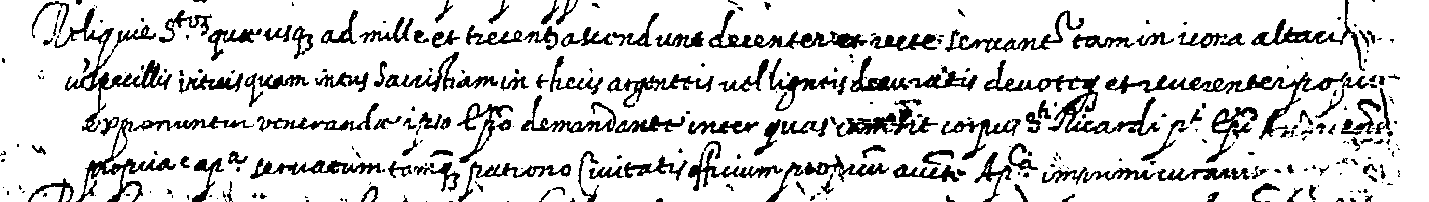 Reliquie S.torum quæ usq; ad mille et trecentas ascendunt decenter et recte servant.r tam in icona altaris
in capillis vitreis quam intus Sacristiam in thecis argenteis vel ligneis deauratis devoteq; et reverenter populo
exponuntur venerandæ ipso Epõ demandante inter quas corpus S.ti Ricardi p.i Epi
propria cap.a servatum tamq; patrono Civitatis officium propriũ auct.e Ap.ca imprimi curavit